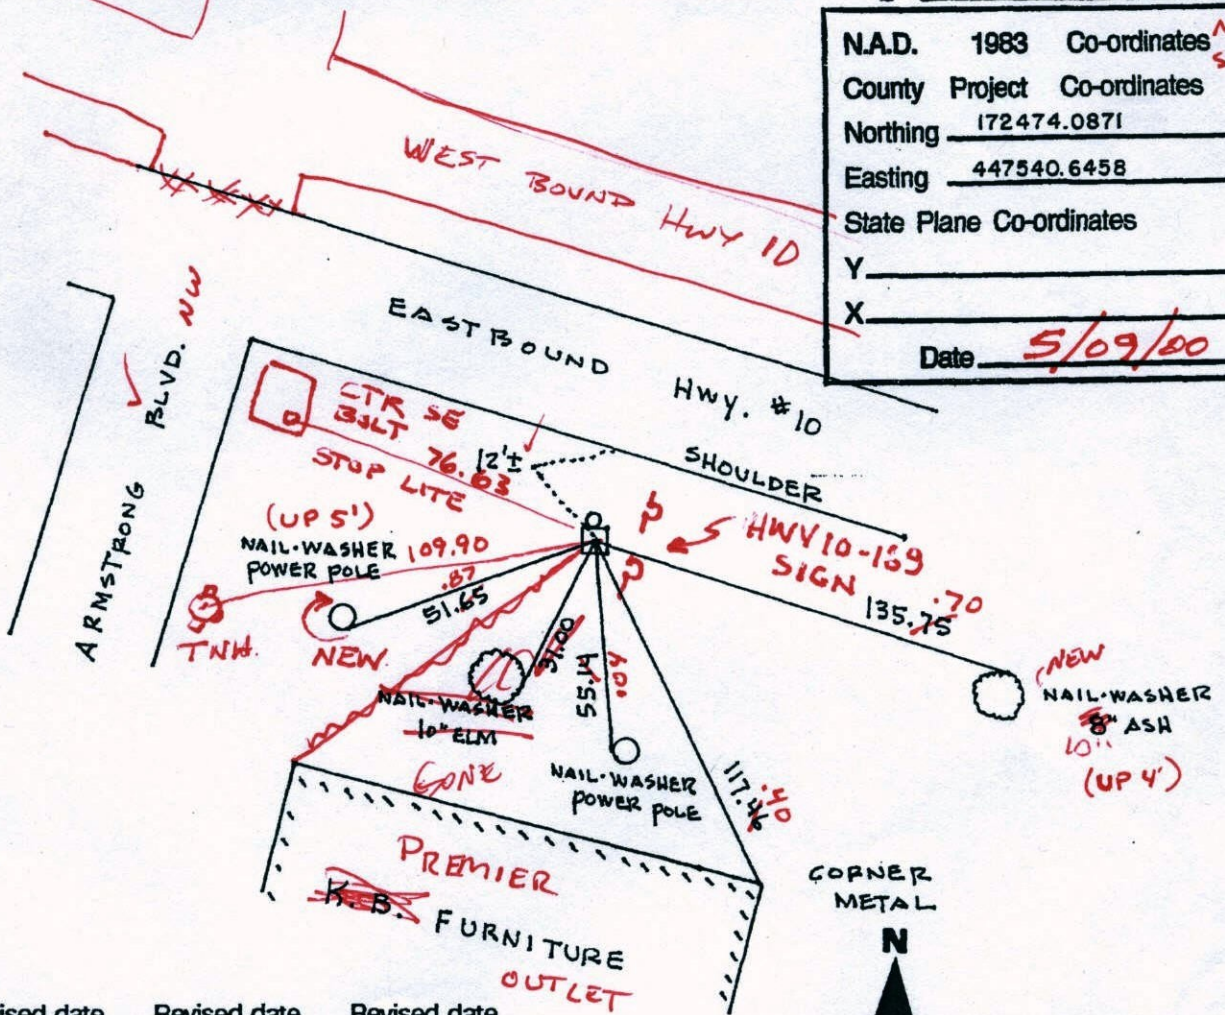 N.A.D. 1983 Co-ordinates
County Project Co-ordinates
Northing 172474.0871
Easting 447540.6458
State Plane Co-ordinates
Y
X
Date 5/09/00
WEST BOUND HWY 10
EASTBOUND Hwy. #10
SHOULDER
ARMSTRONG BLVD. NW
CTR SE
BSLT 76.63
STOP LITE
12'±
(UP 5')
NAIL·WASHER
POWER POLE
109.90
.87
51.65
TNH.
NEW
HWY 10-159
SIGN
.70
135.75
NEW
NAIL·WASHER
8" ASH
10"
(UP 4')
31.00
NAIL·WASHER
10" ELM
GONE
55.14
.09
NAIL·WASHER
POWER POLE
117.46
.40
CORNER
METAL
N
PREMIER
K.B. FURNITURE
OUTLET
Revised date Revised date